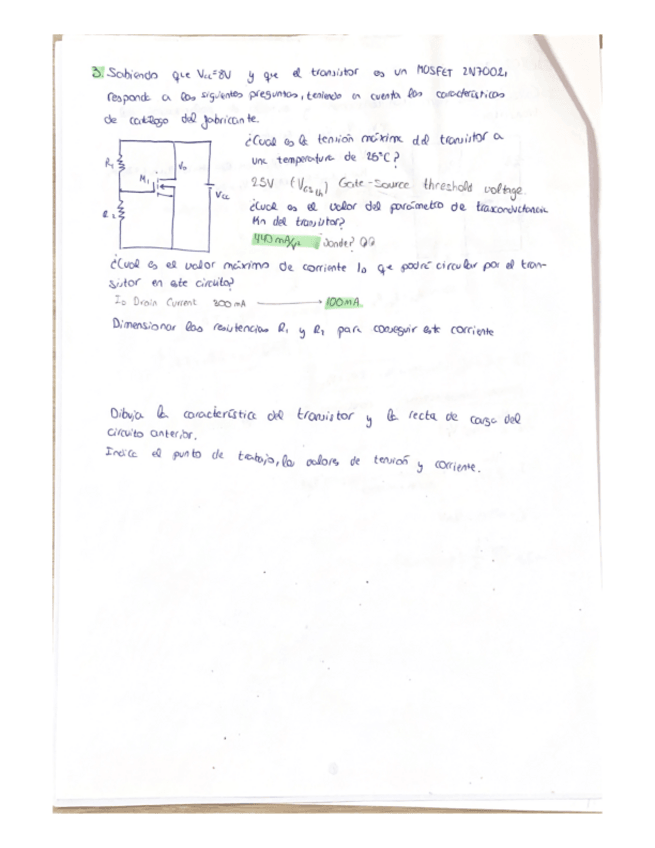 3. Sabiendo que Vcc=8V y que el transistor es un MOSFET 2N7002,
responde a las siguientes preguntas, teniendo en cuenta las características
de catálogo del fabricante.
¿Cual es la tensión máxima del transistor a
una temperatura de 25°C?
2.5V (VGSth) Gate-Source threshold voltage.
¿Cual es el valor del parámetro de trasconductancia
Kn del transistor?
donde?
R1
M1
Io
R2
Vcc
¿Cual es el valor máximo de corriente Io que podrá circular por el tran-
sistor en este circuito?
ID Drain Current 300mA → 100mA
Dimensionar las resistencias R1 y R2 para conseguir esta corriente
Dibuja la característica del transistor y la recta de carga del
circuito anterior.
Indica el punto de trabajo, los valores de tensión y corriente.